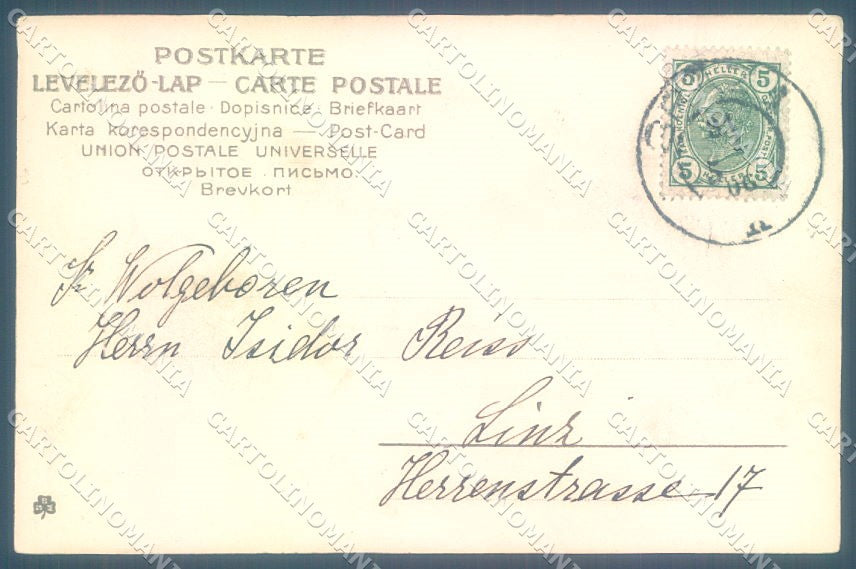 POSTKARTE
LEVELEZŐ-LAP — CARTE POSTALE
Cartolina postale · Dopisnica · Briefkaart
Karta korespondencyjna — Post-Card
UNION POSTALE UNIVERSELLE
ОТКРЫТОЕ ПИСЬМО
Brevkort
5 HELLER 5
5 HELLER 5
06
Sr Wolgeboren
Herrn Isidor Reiss
Linz
Herrenstrasse 17
CARTOLINOMANIA